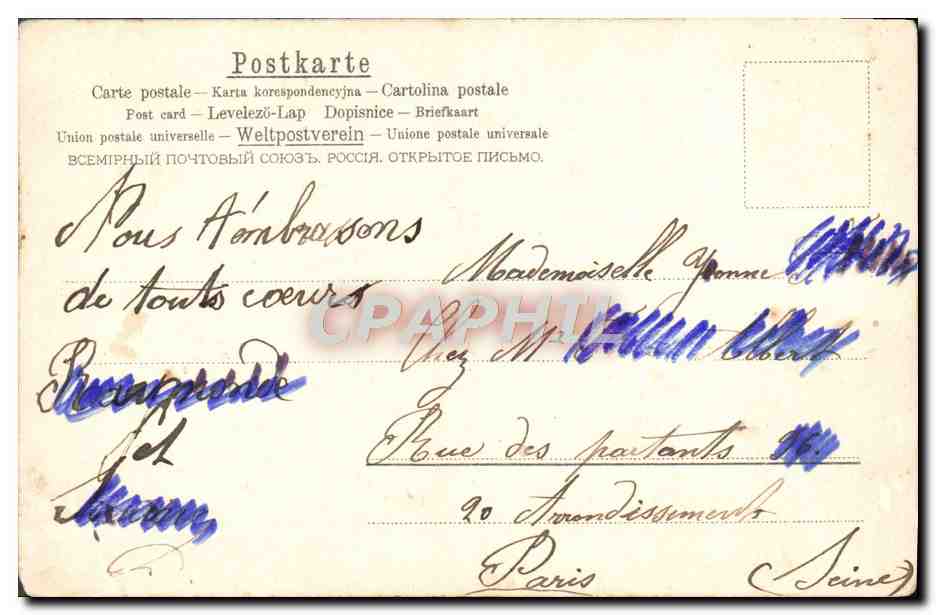 Postkarte
Carte postale — Karta korespondencyjna — Cartolina postale
Post card — Levelező-Lap Dopisnice — Briefkaart
Union postale universelle — Weltpostverein — Unione postale universale
ВСЕМІРНЫЙ ПОЧТОВЫЙ СОЮЗЪ. РОССІЯ. ОТКРЫТОЕ ПИСЬМО.
Nous t'émbrassons
de touts cœurs
Raymonde
et
Mademoiselle Yvonne
Chez Mr Albert
Rue des partants 26
20 Arrondissement
Paris (Seine)
CPAPHIL